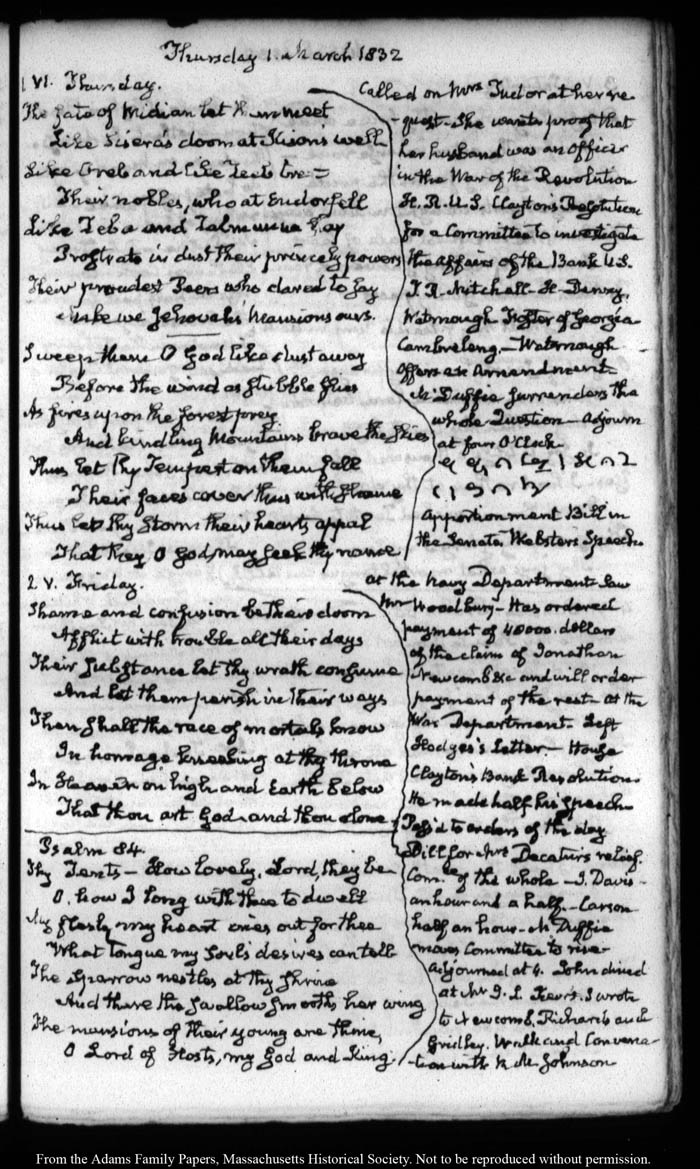 Thursday 1. March 1832
1 VI. Thursday.
The fate of Midian let them meet
Like Sisera's doom at Kison's well
Like Oreb and like Zeeb
Their nobles, who at Endor fell
Like Zeba and Zalmunna lay
Prostrate in dust their princely powers
Their proudest Peers who dared to say
Make we Jehovah's Mansions ours.
Sweep them O God like dust away
Before the wind as stubble flies
As fires upon the forest prey
And kindling Mountains brave the skies
Thus let thy Tempest on them fall
Their faces cover thus with shame
Thus let thy storm their hearts appal
That they O God, may seek thy name
2 V. Friday.
Shame and confusion be their doom
Afflict with trouble all their days
Their substance let thy wrath consume
And let them perish in their ways
Then shall the race of mortals know
In homage kneeling at thy throne
In Heaven on high and Earth below
That thou art God and thou alone
Psalm 84.
Thy Tents – How lovely, Lord, they be
O, how I long with thee to dwell
My flesh, my heart cries out for thee
What tongue my soul's desires can tell
The sparrow nestles at thy shrine
And there the swallow smooths her wing
The mansions of their young are thine,
O Lord of Hosts, my God and King.
Called on Mrs Tudor at her re
-quest – She wants proof that
her husband was an Officer
in the War of the Revolution
H. R. U.S. Clayton's Resolution
for a Committee to investigate
the affairs of the Bank U.S.
T. R. Mitchall – H. Denny.
Watmough Foster of Georgia
Cambreleng. – Watmough
offers an Amendment
McDuffie surrenders the
whole Question – adjourn
at four O'Clock
Apportionment Bill in
the Senate. Webster's Speech
at the Navy Department saw
Mr Woodbury – Has ordered
payment of 40000. dollars
of the claim of Jonathan
Newcomb &c and will order
payment of the rest – at the
War Department. Left
Hodges's Letter. – House
Clayton's Bank Resolution.
He made half his speech
Pass'd to orders of the day
Bill for Mrs Decatur's relief.
Com.ee of the whole – J. Davis –
an hour and a half. – Carson
half an hour – McDuffie
moves Committee to rise –
adjourned at 4. John dined
at Mr
I wrote
to Newcomb, Richards and
Gridley. Walk and Conversa-
-tion with R. M. Johnson
From the Adams Family Papers, Massachusetts Historical Society. Not to be reproduced without permission.